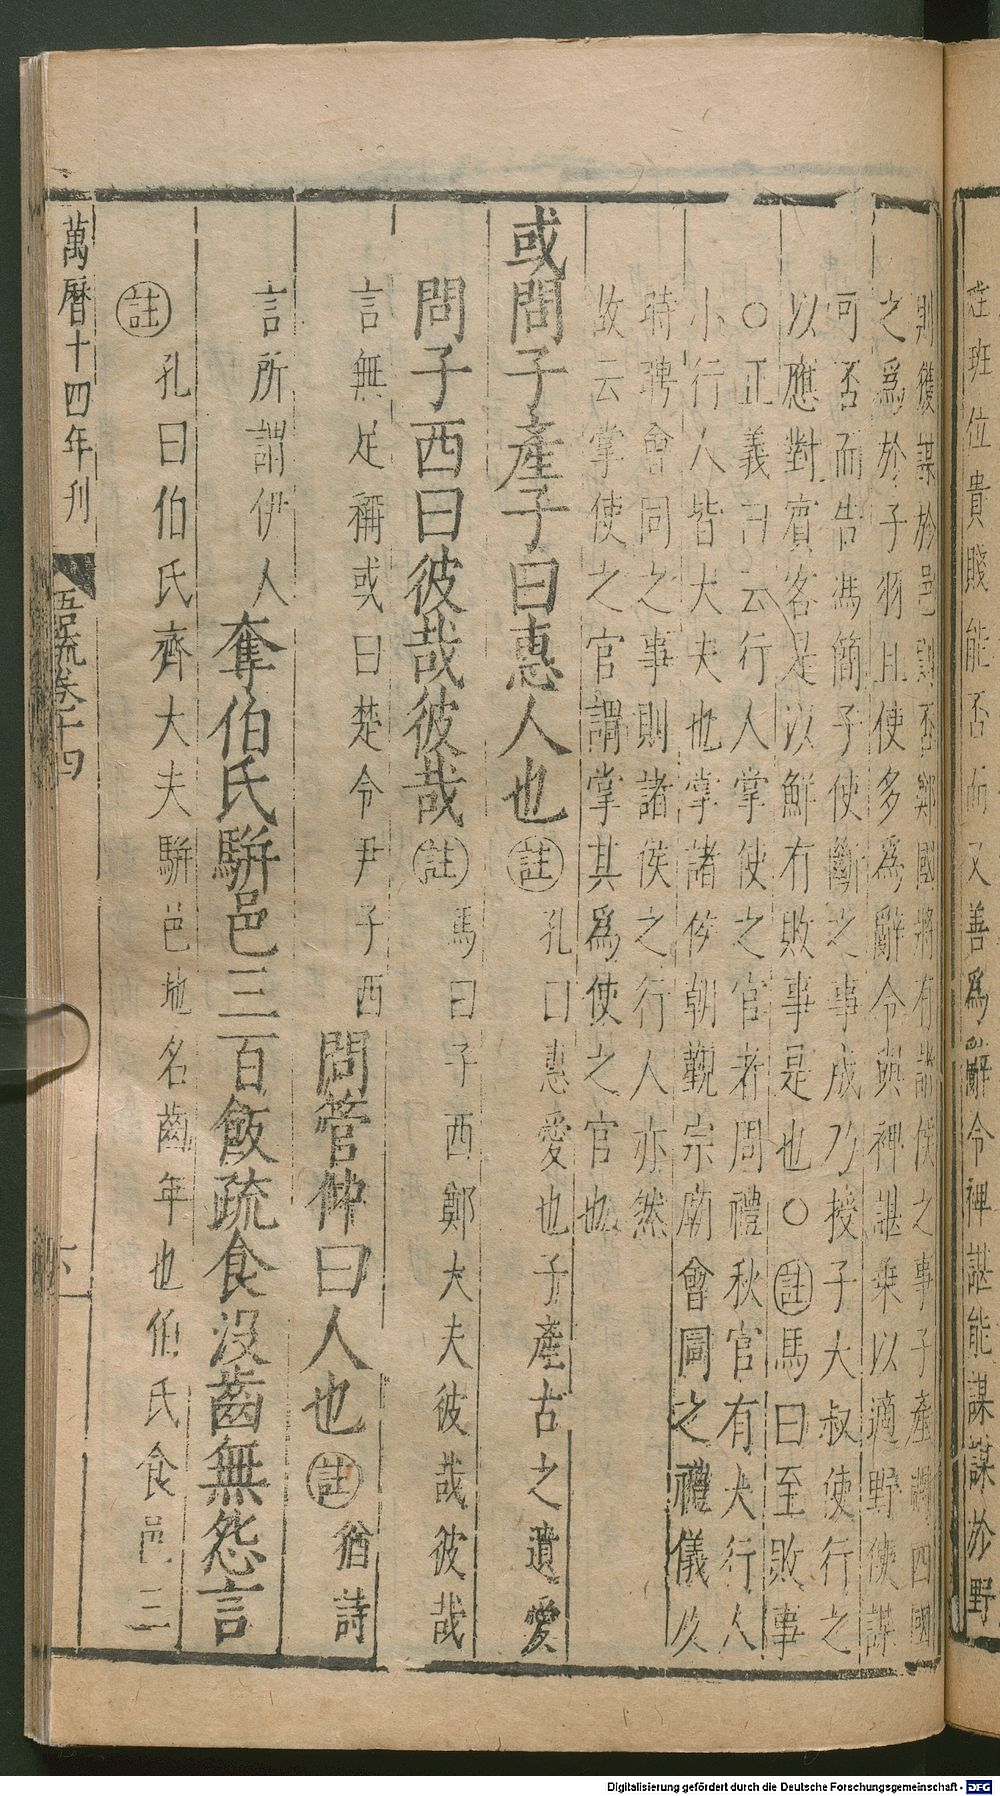 班位貴賤能否而又善爲辭令裨諶能謀謀於野
則獲謀於邑則否鄭國將有諸侯之事子產乃問四國
之爲於子羽且使多爲辭令與裨諶乘以適野使謀
可否而告馮簡子使斷之事成乃授子大叔使行之
以應對賓客是以鮮有敗事是也○註馬曰至敗事
○正義曰云行人掌使之官者周禮秋官有大行人
小行人皆大夫也掌諸侯朝覲宗廟會同之禮儀及
時聘會同之事則諸侯之行人亦然
故云掌使之官謂掌其爲使之官也
或問子產子曰惠人也註孔曰惠愛也子產古之遺愛
問子西曰彼哉彼哉註馬曰子西鄭大夫彼哉彼哉
言無足稱或曰楚令尹子西問管仲曰人也註猶詩
言所謂伊人奪伯氏駢邑三百飯疏食沒齒無怨言
註孔曰伯氏齊大夫駢邑地名齒年也伯氏食邑三
萬曆十四年刊
語疏卷十四
Digitalisierung gefördert durch die Deutsche Forschungsgemeinschaft - DFG